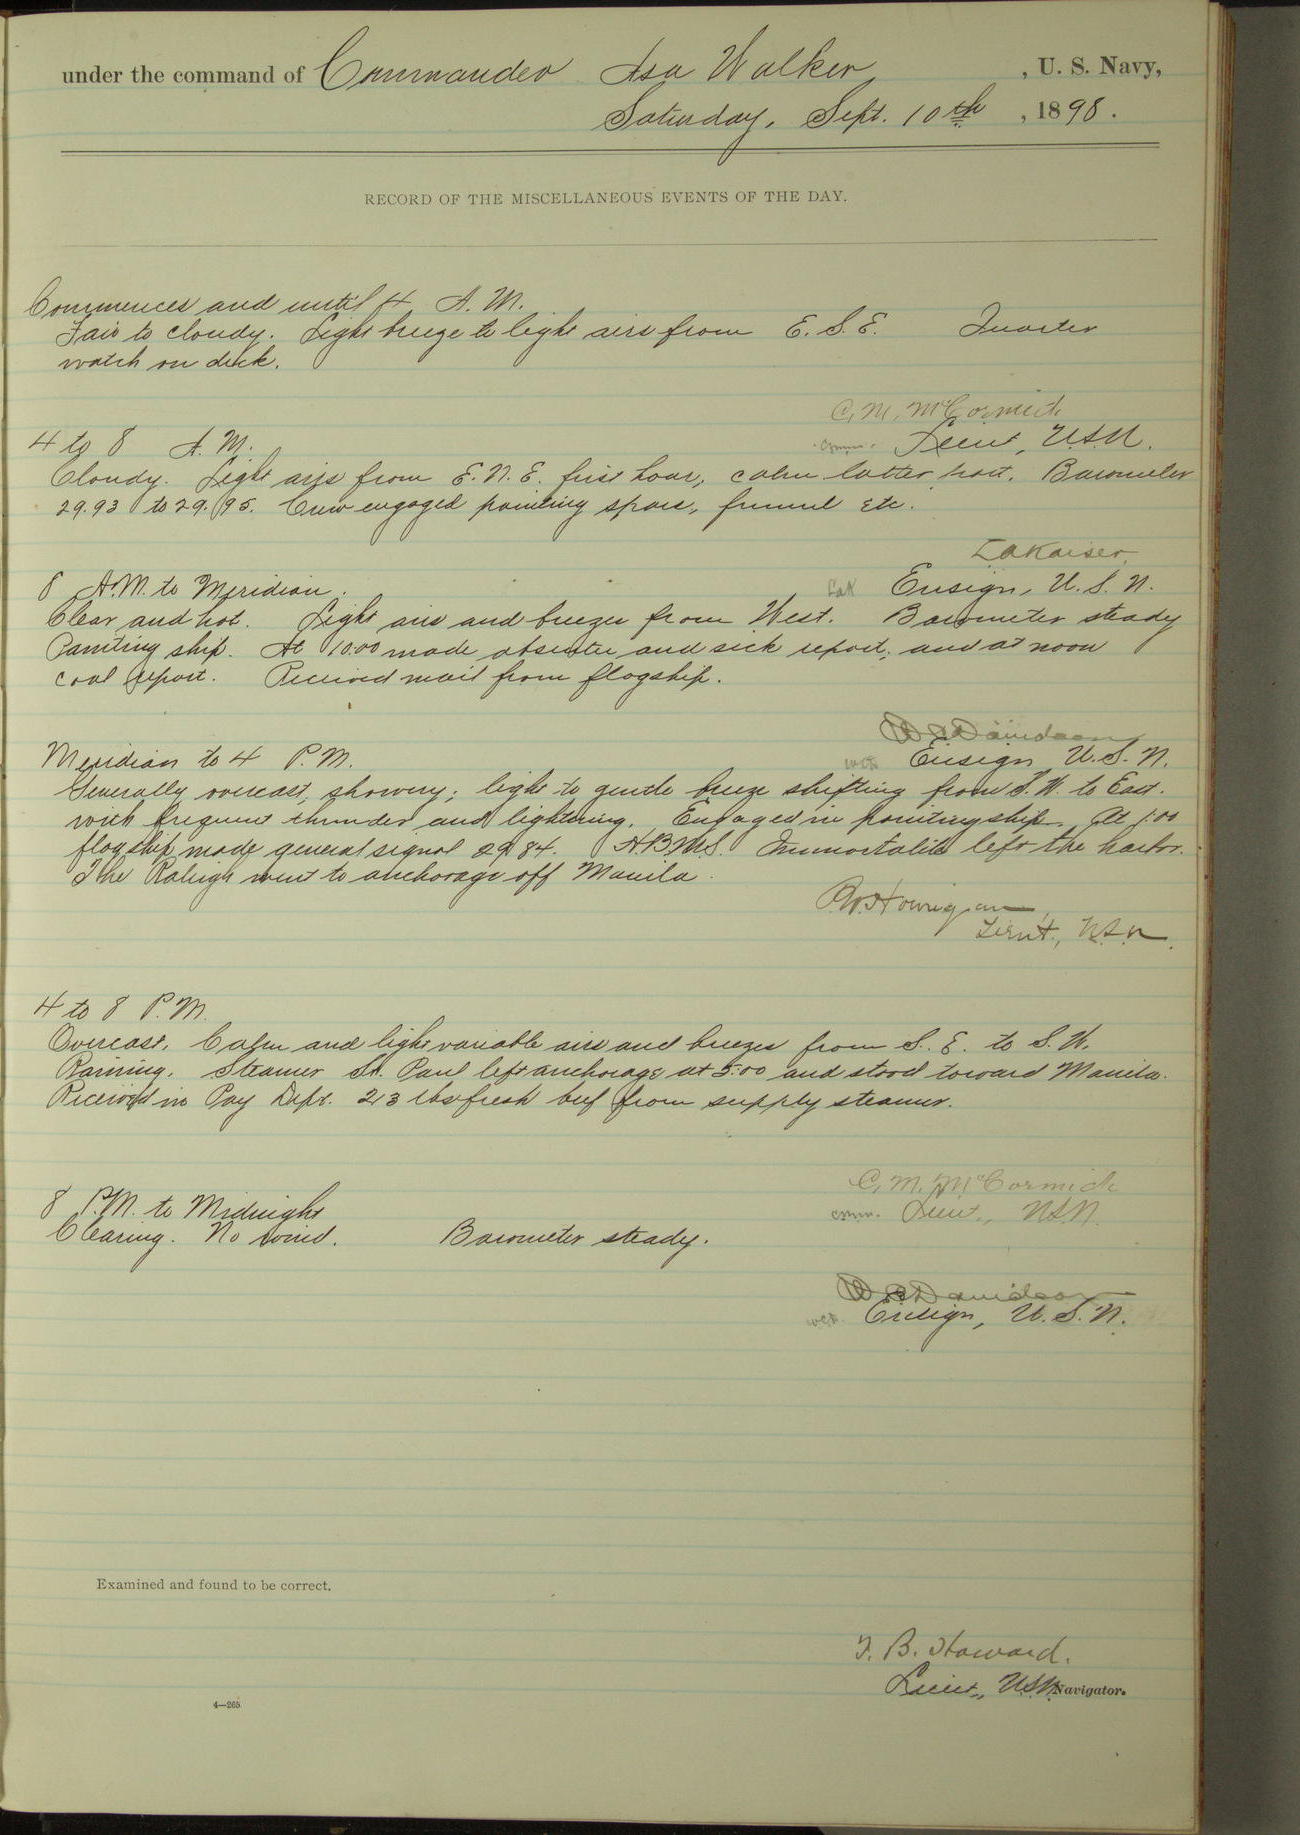 under the command of Commander Asa Walker, U. S. Navy,
Saturday, Sept. 10th, 1898.
RECORD OF THE MISCELLANEOUS EVENTS OF THE DAY.
Commences and until 4 A. M.
Fair to cloudy. Light breeze to light airs from E. S. E. Quarter
watch on deck.
C. M. McCormick
Lieut, U.S.N.
4 to 8 A. M.
Cloudy. Light airs from E. N. E. first hour, calm latter part. Barometer
29.93 to 29.95. Crew engaged painting spars, funnel etc.
L A Kaiser
Ensign, U. S. N.
8 A.M. to Meridian.
Clear and hot. Light airs and breezes from West. Barometer steady
Painting ship. At 10.00 made absentee and sick report; and at noon
coal report. Received mail from flagship.
W C Davidson
Ensign U. S. N.
Meridian to 4 P. M.
Generally overcast, showery; light to gentle breeze shifting from S. W. to East.
with frequent thunder and lightning. Engaged in painting ship. At 1.00
flagship made general signal 2984. H.B.M.S. Immortalité left the harbor.
The Raleigh went to anchorage off Manila.
P.W. Hourigan,
Lieut., U.S.N.
4 to 8 P. M.
Overcast. Calm and light variable airs and breezes from S. E. to S. W.
Raining. Steamer St. Paul left anchorage at 5.00 and stood toward Manila.
Received in Pay Dept. 213 lbs fresh beef from supply steamer.
C. M. McCormick
Lieut., U.S.N.
8 P.M. to Midnight
Clearing. No wind. Barometer steady.
W C Davidson
Ensign, U. S. N.
Examined and found to be correct.
T. B. Howard.
Lieut., U.S.N. Navigator.
4—265